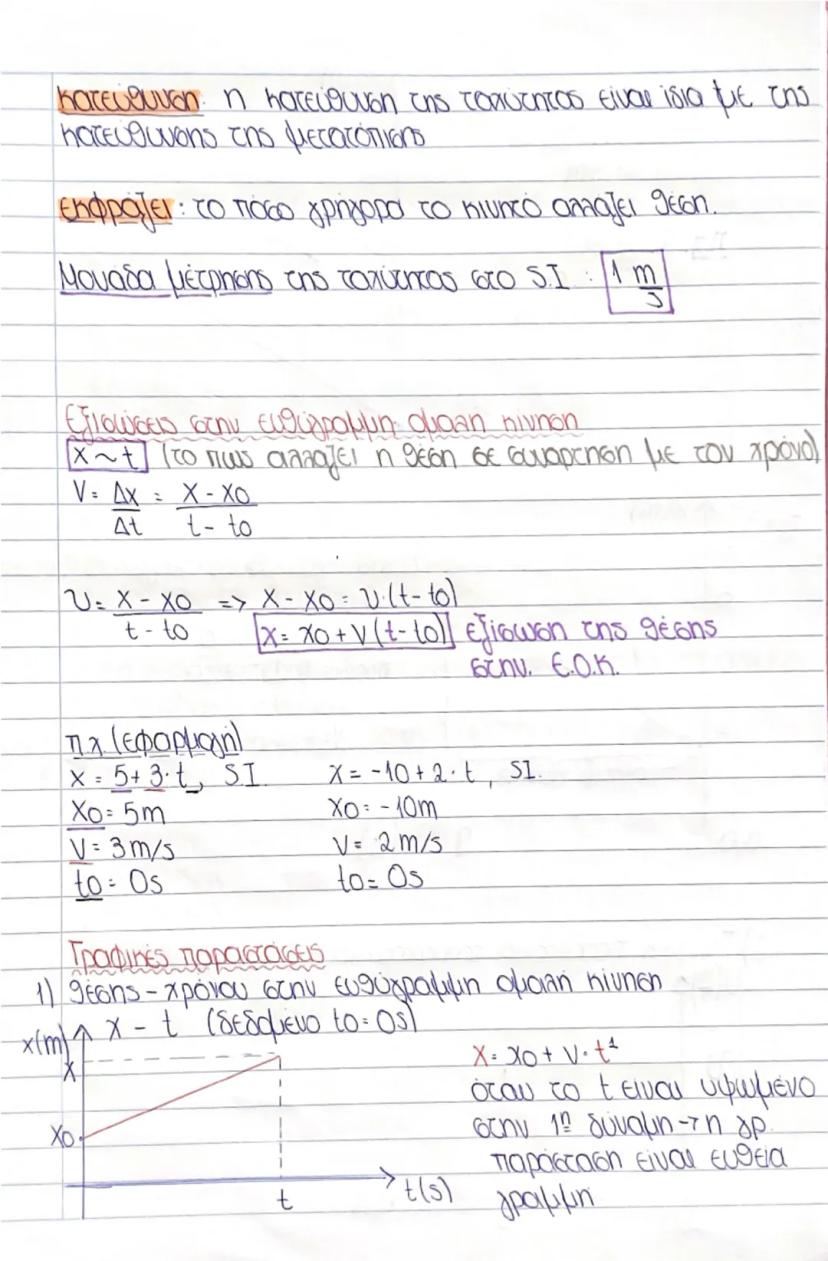 κατεύθυνση: η κατεύθυνση της ταχύτητας είναι ίδια με της
κατεύθυνσης της μετατόπισης
εκφράζει: το πόσο γρήγορα το κινητό αλλάζει θέση.
Μονάδα μέτρησης της ταχύτητας στο S.I : 1 m/s
Εξισώσεις στην ευθύγραμμη ομαλή κίνηση
x~t (το πως αλλάζει η θέση σε συνάρτηση με τον χρόνο)
V = Δx/Δt = x - xo/t - to
υ = x - xo/t - to => x - xo = υ·(t-to)
x = xo + v (t-to) εξίσωση της θέσης
στην. Ε.Ο.Κ.
π.χ (εφαρμογή)
x = 5 + 3·t, SI. x = -10 + 2·t, SI.
xo = 5m xo = -10m
v = 3m/s v = 2m/s
to = 0s to = 0s
Γραφικές παραστάσεις
1) θέσης - χρόνου στην ευθύγραμμη ομαλή κίνηση
x(m) x - t (δεδομένο to = 0s)
x x = xo + v·t¹
όταν το t είναι υψωμένο
xo στην 1η δύναμη → η γρ.
παράσταση είναι ευθεία
t t(s) γραμμή